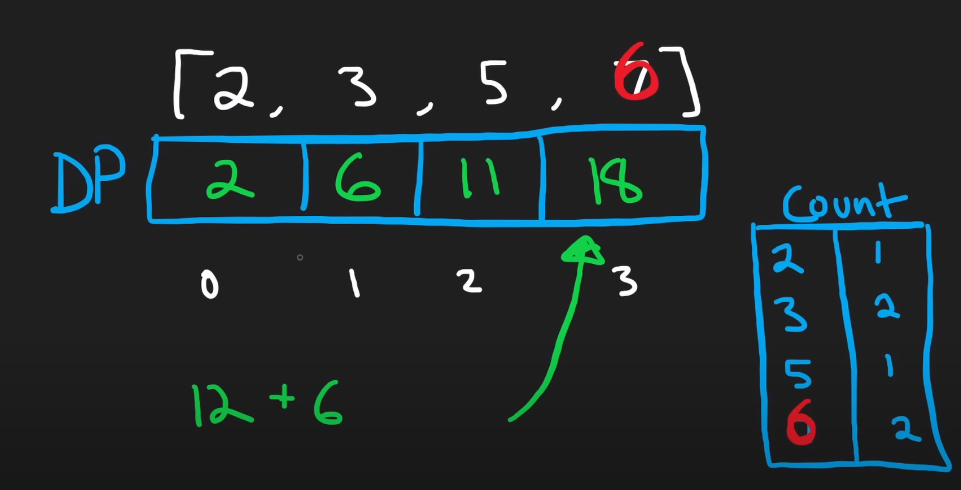 [2, 3, 5, 6]
DP 2 6 11 18
0 1 2 3
12 + 6
Count
2 1
3 2
5 1
6 2